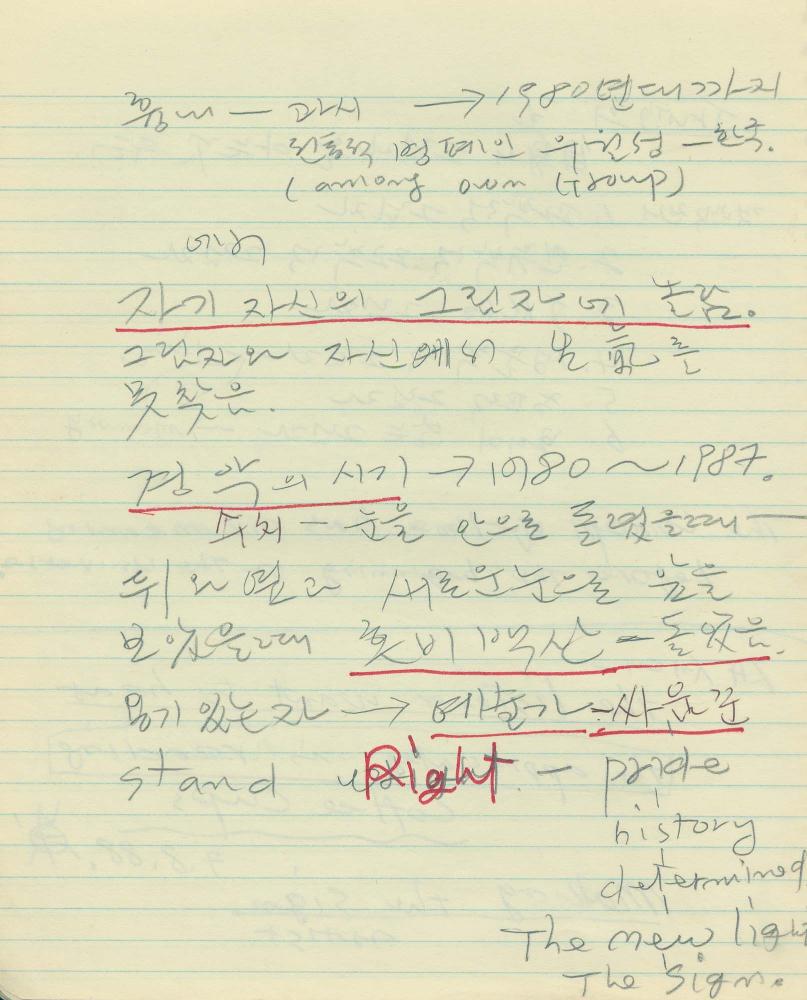 흉내 — 과시 → 1980년대까지
우월성 — 한국.
(among own Group)
에서
자기 자신의 그림자에 놀람.
그림자와 자신에서 본 氣를
못 찾은.
경악의 시기 → 1980 ~ 1987.
수치 — 눈을 안으로 돌렸을때 —
뒤와 옆과 새로운 눈으로 앞을
보았을때 — 돌았음.
용기 있는자 → 예술가 - 싸움꾼
stand Right. — pride
history
determined
The new light
The Sign.